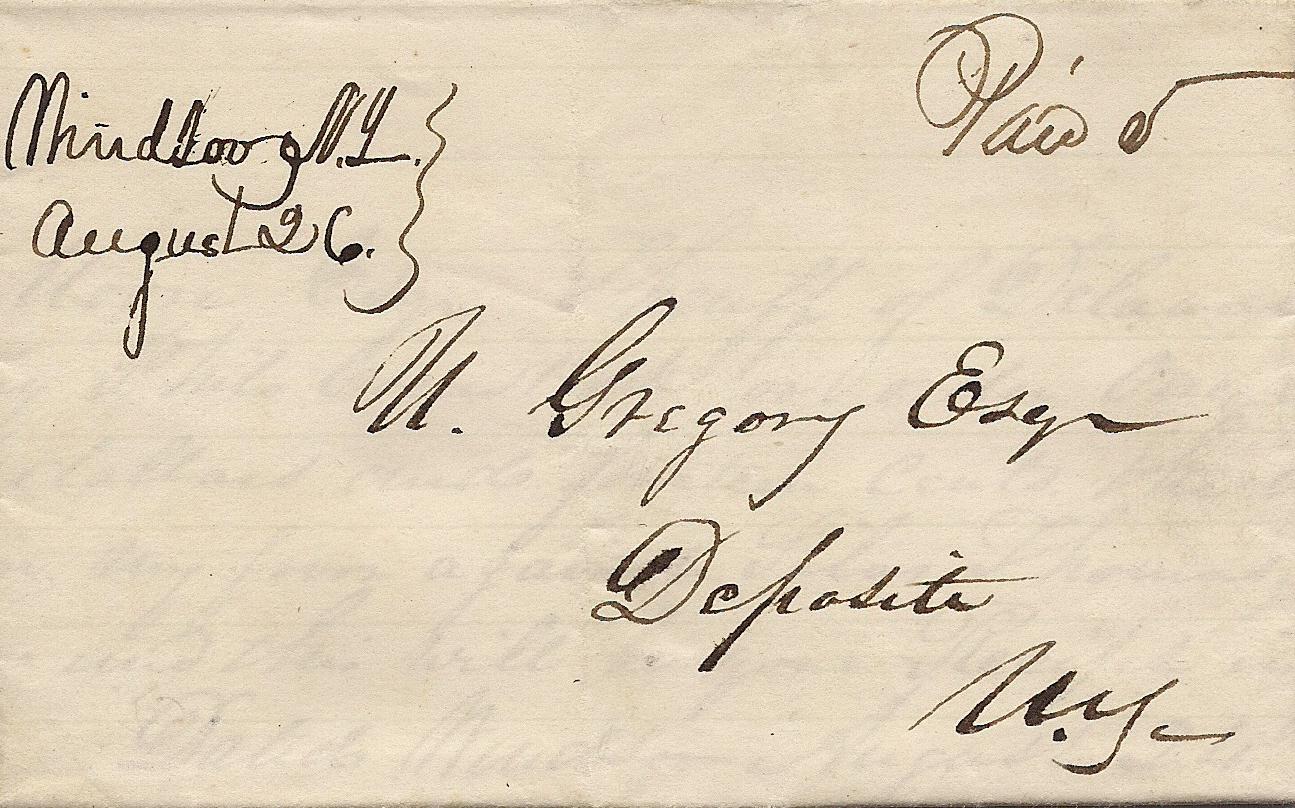 Windsor N.Y.
August 26.
Paid 5
Gregory Esqr
Deposite
N.Y.